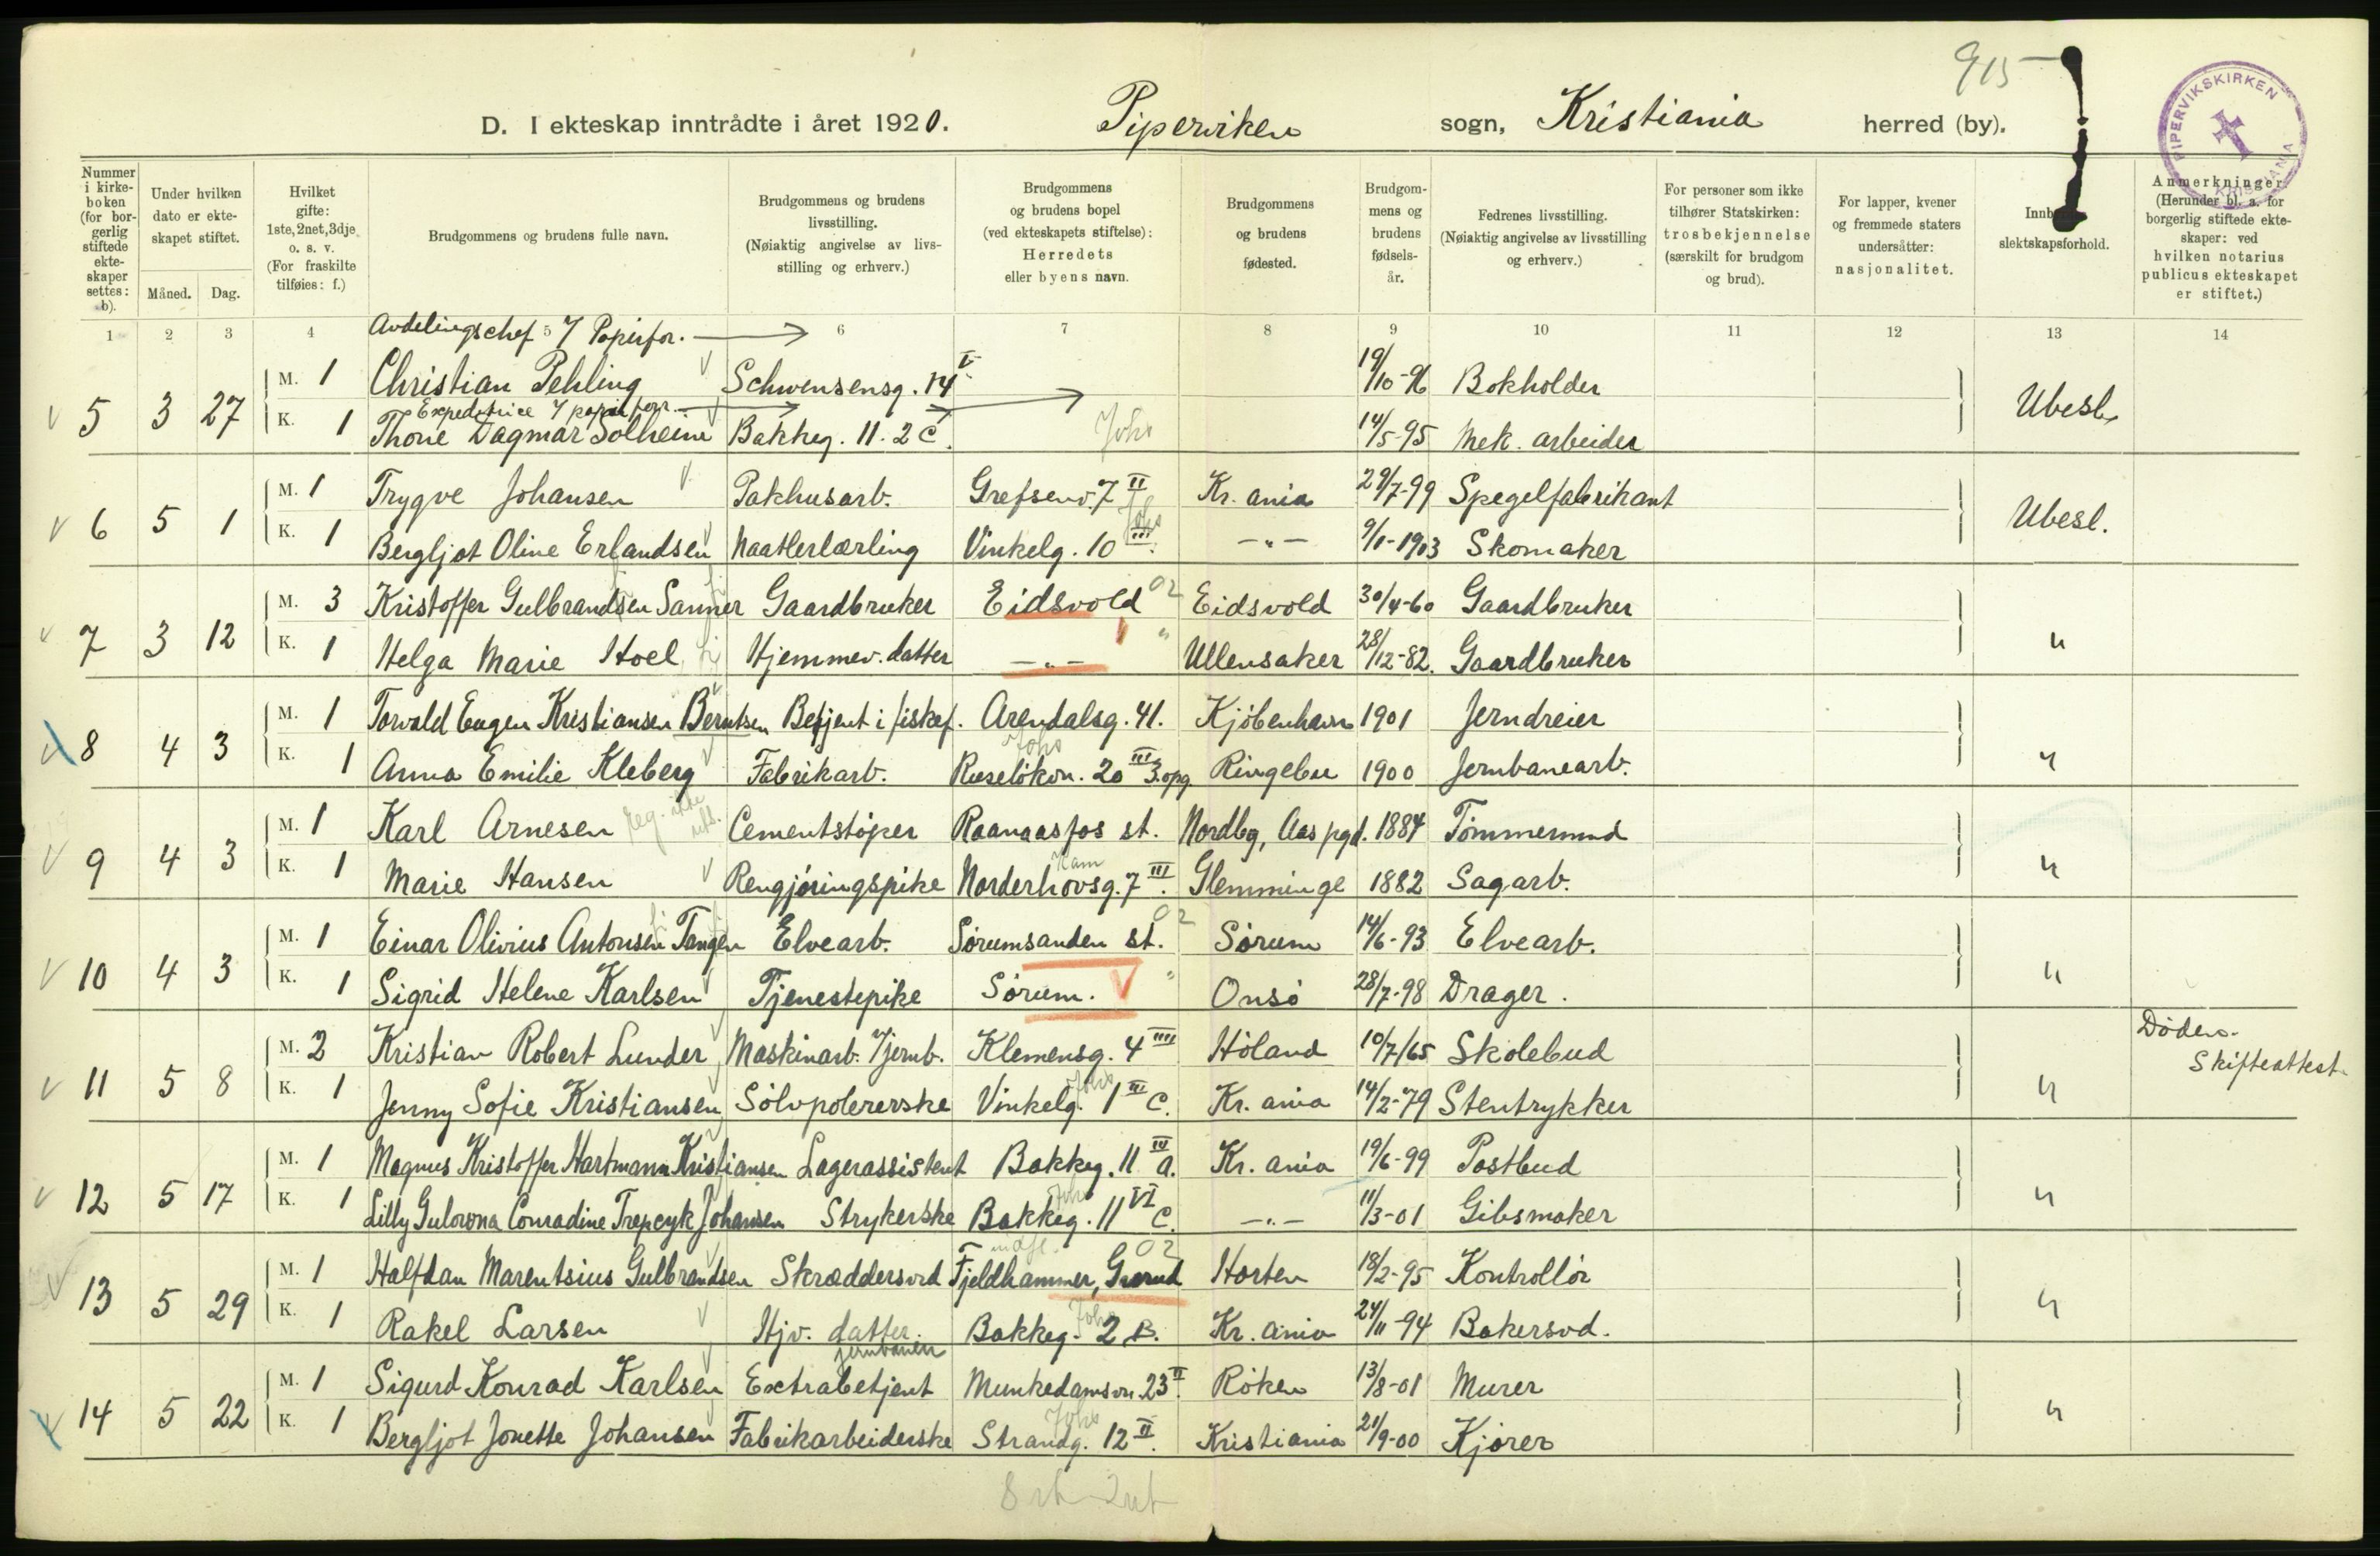 915
PIPERVIKSKIRKEN
KRISTIANIA
D. I ekteskap inntrådte i året 1920. Piperviken sogn, Kristiania herred (by).
Nummer i kirkeboken (for borgerlig stiftede ekteskaper settes: b).
Under hvilken dato er ekteskapet stiftet.
Måned. Dag.
Hvilket gifte: 1ste, 2net, 3dje o. s. v. (For fraskilte tilføies: f.)
Brudgommens og brudens fulle navn.
Brudgommens og brudens livsstilling. (Nøiaktig angivelse av livsstilling og erhverv.)
Brudgommens og brudens bopel (ved ekteskapets stiftelse): Herredets eller byens navn.
Brudgommens og brudens fødested.
Brudgommens og brudens fødselsår.
Fedrenes livsstilling. (Nøiaktig angivelse av livsstilling og erhverv.)
For personer som ikke tilhører Statskirken: trosbekjennelse (særskilt for brudgom og brud).
For lapper, kvener og fremmede staters undersåtter: nasjonalitet.
slektskapsforhold.
Anmerkninger. (Herunder bl. a. for borgerlig stiftede ekteskaper: ved hvilken notarius publicus ekteskapet er stiftet.)
1 2 3 4 5 6 7 8 9 10 11 12 13 14
Avdelingschef i Papirfor.
5 3 27 M. 1 Christian Pehling Schwensensg. 14 V 19/10-96 Bokholder Ubesl.
Expeditrice i papirforr.
K. 1 Thone Dagmar Solheim Bakkeg. 11. 2 C. Johs 14/5-95 Mek. arbeider
6 5 1 M. 1 Trygve Johansen Pakhusarb. Grefsenv. 7 II Kr. ania 29/7-99 Spegelfabrikant Ubesl.
K. 1 Bergljot Oline Erlandsen Naatlerlærling Vinkelg. 10 III. Johs -„- 9/1-1903 Skomaker
7 3 12 M. 3 Kristoffer Gulbrandsen Sanner Gaardbruker Eidsvold 02 Eidsvold 30/4-60 Gaardbruker "
K. 1 Helga Marie Hoel Hjemmev. datter -„- " Ullensaker 28/12-82. Gaardbruker
8 4 3 M. 1 Torvald Eugen Kristiansen Berntsen Betjent i fiskef. Arendalsg. 41. Kjöbenhavn 1901 Jerndreier "
K. 1 Anna Emilie Kleberg Fabrikarb. Ruselökvn. 20 III 3. opg. Johs Ringebu 1900 Jernbanearb.
9 4 3 M. 1 Karl Arnesen Cementstöper Raanaasfos st. Nordby, Aas pgd. 1884 Tömmermand "
K. 1 Marie Hansen Rengjöringspike Norderhovsg. 7 III. Ham Glemminge 1882 Sagarb.
10 4 3 M. 1 Einar Olivius Antonsen Tangen Elvearb. Sörumsanden st. 02 Sörum 14/6-93 Elvearb. "
K. 1 Sigrid Helene Karlsen Tjenestepike Sörum. " Onsö 28/7-98 Drager.
11 5 8 M. 2 Kristian Robert Lunder Maskinarb. v/jernb. Klemensg. 4 IIII Höland 10/7/65 Skolebud " Dödsv. Skifteattest
K. 1 Jenny Sofie Kristiansen Sölvpolererske Vinkelg. 1 III C. Johs Kr. ania 14/2-79 Stentrykker
12 5 17 M. 1 Magnus Kristoffer Hartmann Kristiansen Lagerassistent Bakkeg. 11 IV a. Kr. ania 19/6-99 Postbud "
K. 1 Lilly Gulovna Conradine Trepcyk Johansen Strykerske Bakkeg. 11 VI C. Johs -„- 11/3-01 Gibsmaker
13 5 29 M. 1 Halfdan Marentsius Gulbrandsen Skræddersvd Fjeldhammer, Grorud 02 Horten 18/2-95 Kontrollör "
K. 1 Rakel Larsen Hjv. datter. Bakkeg. 2 B. Johs Kr. ania 24/11-94 Bakersvd.
14 5 22 M. 1 Sigurd Konrad Karlsen Extrabetjent jernbanen Munkedamsvn. 23 II. Röken 13/8-01 Murer "
K. 1 Bergljot Jonette Johansen Fabrikarbeiderske Strandg. 12 II. Johs Kristiania 21/9-00 Kjörer